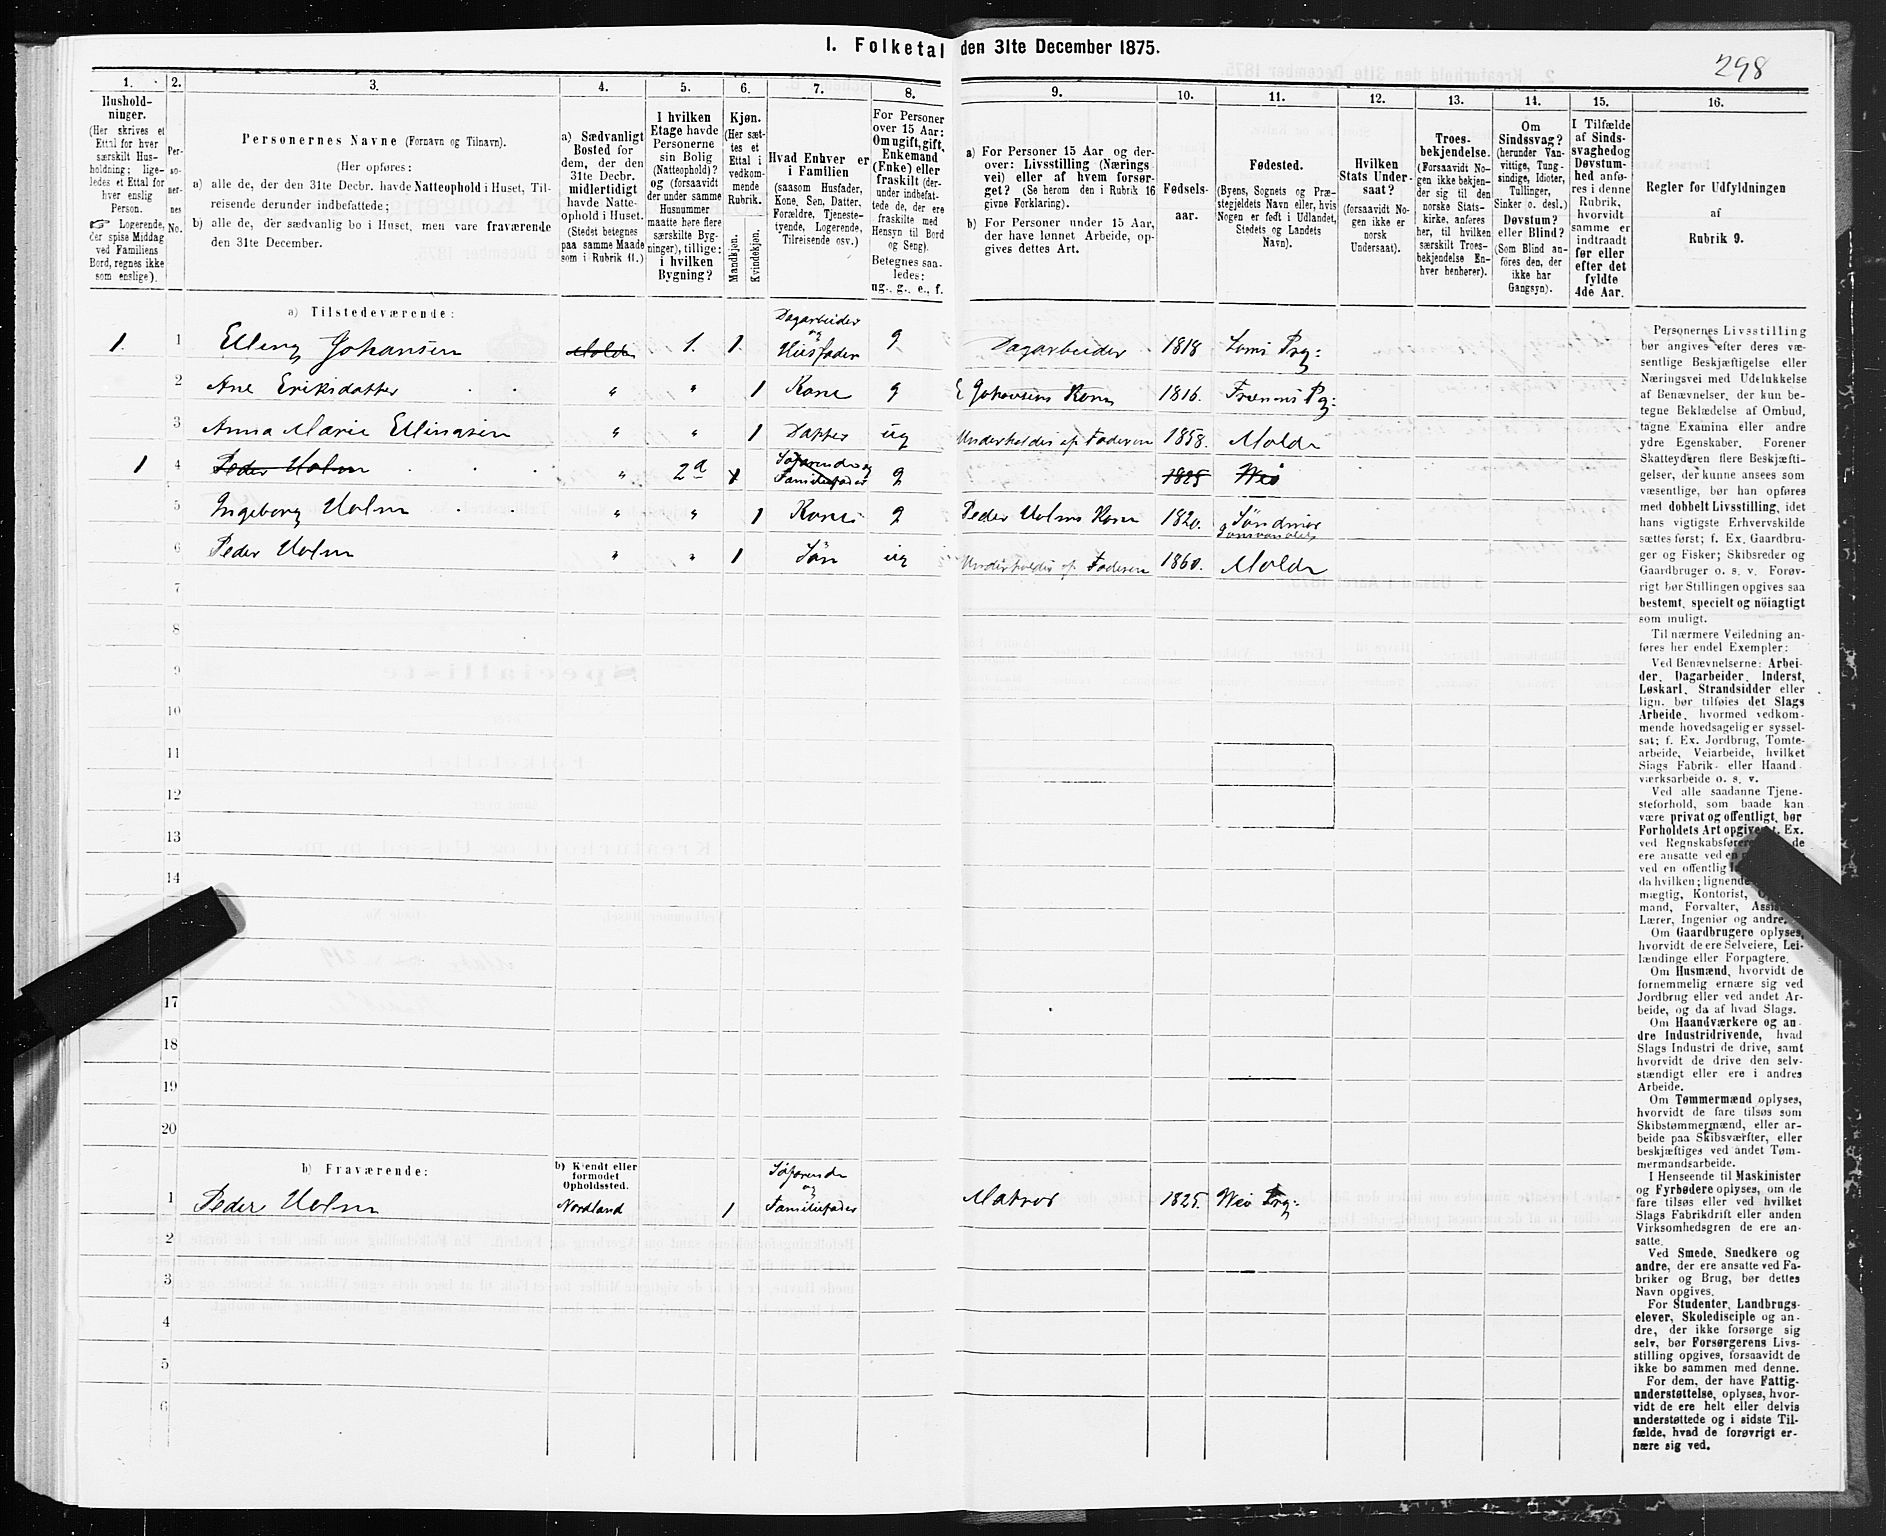 1. Folketal den 31te December 1875.
298
1.
2.
3.
4.
5.
6.
7.
8.
9.
10.
11.
12.
13.
14.
15.
16.
Hushold-
ninger.
(Her skrives et
Ettal for hver
særskilt Hus-
holdning; lige-
ledes et Ettal for
hver enslig
Person.
☞ Logerende,
der spise Middag
ved Familiens
Bord, regnes ikke
som enslige).
Per-
so-
ner-
nes
No.
Personernes Navne (Fornavn og Tilnavn).
(Her opføres:
a) alle de, der den 31te Decbr. havde Natteophold i Huset, Til-
reisende derunder indbefattede;
b) alle de, der sædvanlig bo i Huset, men vare fraværende
den 31te December.
a) Sædvanligt
Bosted for
dem, der den
31te Decbr.
midlertidigt
havde Natte-
ophold i Huset.
(Stedet betegnes
paa samme Maade
som i Rubrik 11.)
I hvilken
Etage havde
Personerne
sin Bolig
(Natteophold)?
og (forsaavidt
der under samme
Husnummer
maatte høre flere
særskilte Byg-
ninger), tillige:
i hvilken
Bygning?
Kjøn.
(Her sæt-
tes et
Ettal i
vedkom-
mende
Rubrik.
Mandkjøn.
Kvindekjøn.
Hvad Enhver er
i Familien
(saasom Husfader,
Kone, Søn, Datter,
Forældre, Tjeneste-
tyende, Logerende,
Tilreisende osv.)
For Personer
over 15 Aar:
Om ugift, gift,
Enkemand
(Enke) eller
fraskilt (der-
under indbefat-
tede de, der ere
fraskilte med
Hensyn til Bord
og Seng).
Betegnes saa-
ledes:
ug., g., e., f.
a) For Personer 15 Aar og der-
over: Livsstilling (Nærings
vei) eller af hvem forsør-
get? (Se herom den i Rubrik 16
givne Forklaring).
b) For Personer under 15 Aar,
der have lønnet Arbeide, op-
gives dettes Art.
Fødsels-
aar.
Fødested.
(Byens, Sognets og Præ-
stegjeldets Navn eller, hvis
Nogen er født i Udlandet,
Stedets og Landets
Navn).
Hvilken
Stats Under-
saat?
(forsaavidt No-
gen ikke er
norsk
Undersaat).
Troes-
bekjendelse.
(Forsaavidt No-
gen ikke bekjen-
der sig til den
norske Stats-
kirke, anføres
her, til hvilken
særskilt Troes-
bekjendelse En-
hver henhører).
Om
Sindssvag?
(herunder Van-
vittige, Tung-
sindige, Idioter,
Tullinger,
Sinker o. desl.)
Døvstum?
eller Blind?
(Som Blind an-
føres den, der
ikke har
Gangsyn).
I Tilfælde
af Sinds-
svaghed og
Døvstum-
hed anfø-
res i denne
Rubrik,
hvorvidt
samme er
indtraadt
før eller
efter det
fyldte
4de Aar.
Regler for Udfyldningen
af
Rubrik 9.
a) Tilstedeværende:
1. 1 Elling Johansen Molde 1. 1. Dagarbeider og Husfader g Dagarbeider 1818 Præg:
2 Ane Eriksdatter " " 1 Kone g E Johansens Kone 1816. Frænens Pg:
3 Anna Marie Ellingsen " " 1 Datter ug Underholdes af Faderen 1858. Molde
1 4 Peder Holm " 2a 1 Søfarende og Familiefader g 1825 Veø
5 Ingeborg Holm " " 1 Kone g Peder Holms Kone 1820. Søndmør
6 Peder Holm " " 1 Søn ug Underholdes af Faderen 1860. Molde
7
8
9
10
11
12
13
14
17
18
19
20
b) Fraværende:
b) Kjendt eller
formodet
Opholdssted.
1 Peder Holm Nordland 1 Søfarende og Familiefader Matros 1825. Veø Præg:
2
3
4
5
6
Personernes Livsstilling
bør angives efter deres væ-
sentlige Beskjæftigelse eller
Næringsvei med Udelukkelse
af Benævnelser, der kun be-
tegne Beklædelse af Ombud,
tagne Examina eller andre
ydre Egenskaber. Forener
Skatteyderen flere Beskjæfti-
gelser, der kunne ansees som
væsentlige, bør han opføres
med dobbelt Livsstilling, idet
hans vigtigste Erhvervskilde
sættes først; f. Ex. Gaardbru-
ger og Fisker; Skibsreder og
Gaardbruger o. s. v. Forøv-
rigt bør Stillingen opgives saa
bestemt, specielt og nöiagtigt
som muligt.
Til nærmere Veiledning an-
føres her endel Exempler:
Ved Benævnelserne: Arbei-
der, Dagarbeider, Inderst,
Løskarl, Strandsidder eller
lign. bør tilføies det Slags
Arbeide, hvormed vedkom-
mende hovedsagelig er syssel-
sat; f. Ex. Jordbrug, Tomte-
arbeide, Veiarbeide, hvilket
Slags Fabrik- eller Haand-
værksarbeide o. s. v.
Ved alle saadanne Tjene-
steforhold, som baade kan
være privat og offentligt, bør
Forholdets Art opgives, f. Ex.
ved Regnskabsfører
ere ansatte ved en
ved en offentlig
da hvilken; lignende
mægtig, Kontorist,
mand, Forvalter,
Lærer, Ingeniør og andre.
Om Gaardbrugere oplyses,
hvorvidt de ere Selveiere, Lei-
lændinge eller Forpagtere.
Om Husmænd, hvorvidt de
fornemmelig ernære sig ved
Jordbrug eller ved andet Ar-
beide, og da af hvad Slags.
Om Haandværkere og an-
dre Industridrivende, hvad
Slags Industri de drive, samt
hvorvidt de drive den selv-
stændigt eller ere i andres
Arbeide.
Om Tømmermænd oplyses,
hvorvidt de fare tilsøs som
Skibstømmermænd, eller ar-
beide paa Skibsværfter, eller
beskjæftiges ved andet Tøm-
mermandsarbeide.
I Henseende til Maskinister
og Fyrbødere oplyses, om de
fare tilsøs eller ved hvilket
Slags Fabrikdrift eller anden
Virksomhedsgren de ere an-
satte.
Ved Smede, Snedkere og
andre, der ere ansatte ved Fa-
briker og Brug, bør dettes
Navn opgives.
For Studenter, Landbrugs-
elever, Skoledisciple og an-
dre, der ikke forsørge sig
selv, bør Forsørgerens Livs-
stilling opgives, forsaavidt de
ikke bo sammen med denne.
For dem, der have Fattig-
understøttelse, oplyses, hvor-
vidt de ere helt eller delvis
understøttede og i sidste Til-
fælde, hvad de forøvrigt er-
nære sig ved.